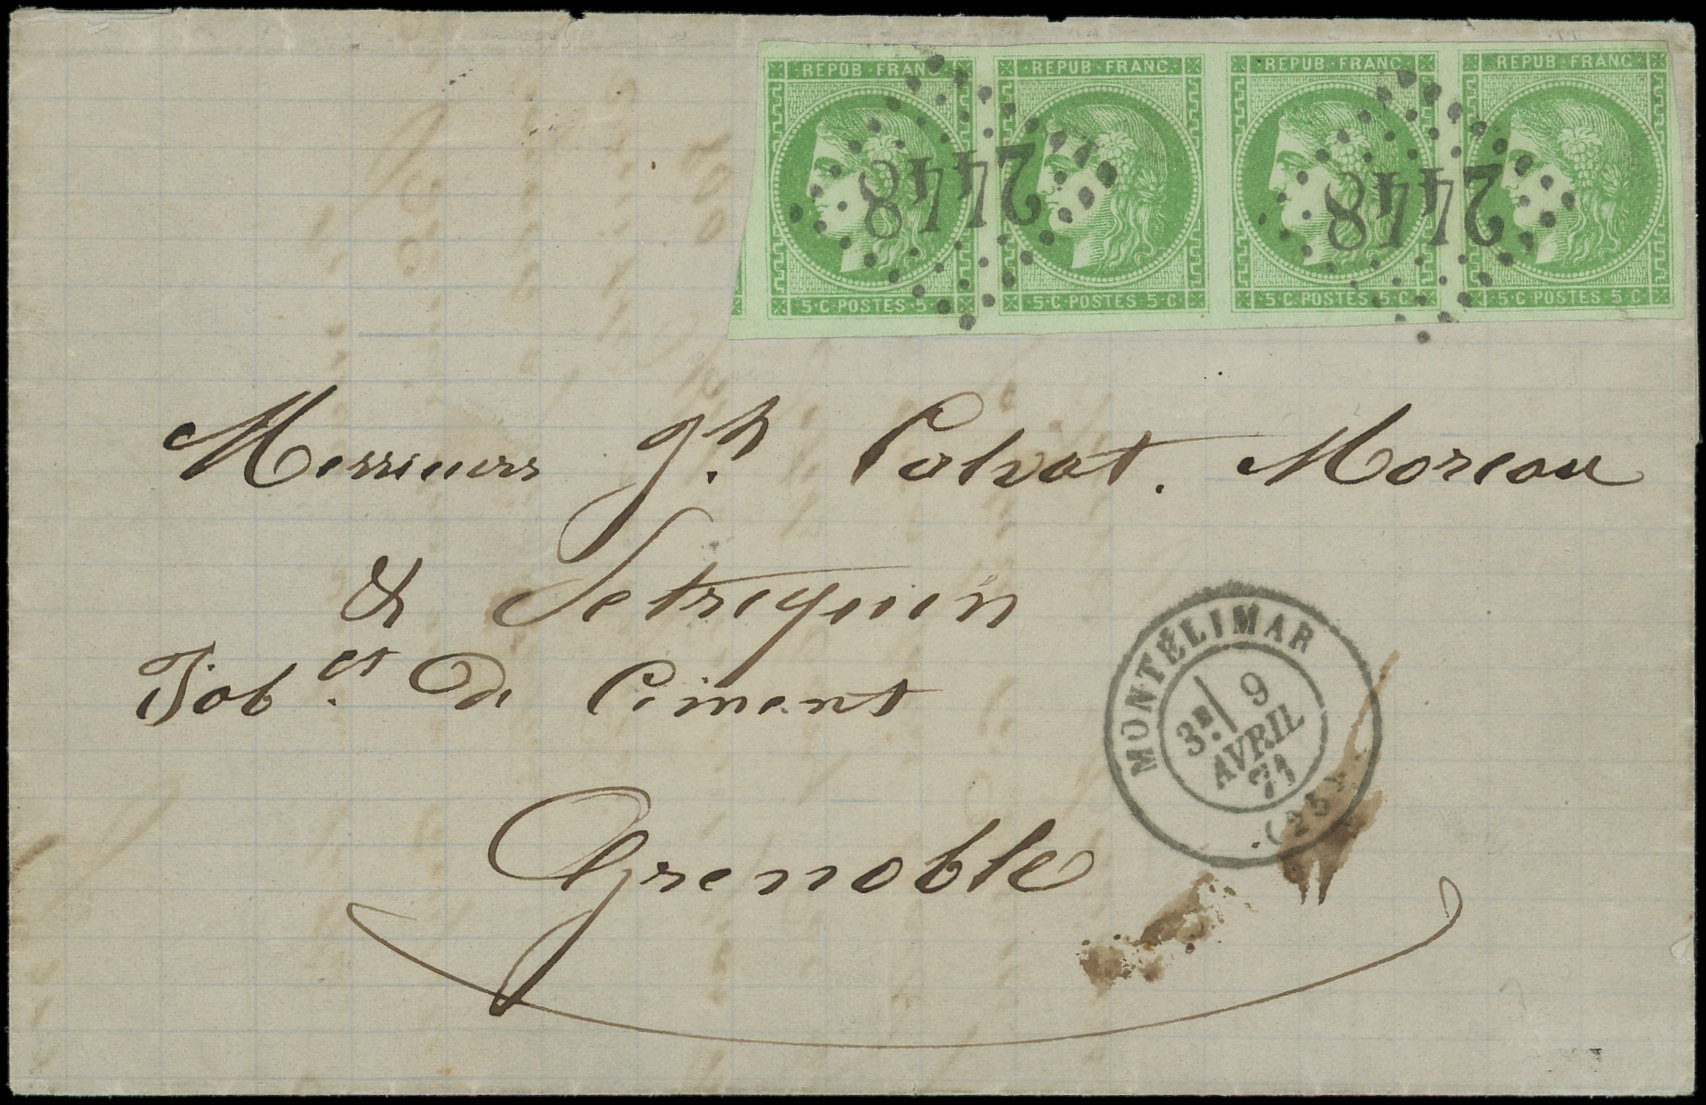 REPUB·FRANC· REPUB·FRANC· REPUB·FRANC· REPUB·FRANC·
2448 2448
5·C·POSTES·5·C 5·C·POSTES·5·C 5·C·POSTES·5·C 5·C·POSTES·5·C
Messieurs Jh. Colvat. Moreau
& Setreguin
Fabts. De Ciment
MONTÉLIMAR
3E 9
AVRIL
71
(25)
Grenoble